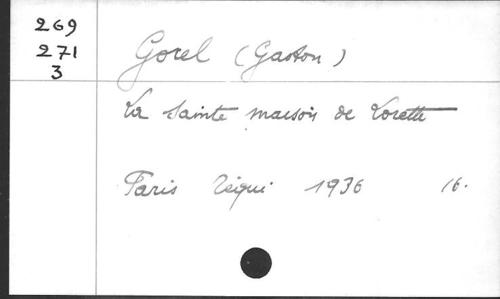 269
271
3
Gorel (Gaston)
La Sainte maison de Lorette
Paris Téqui 1936 16.